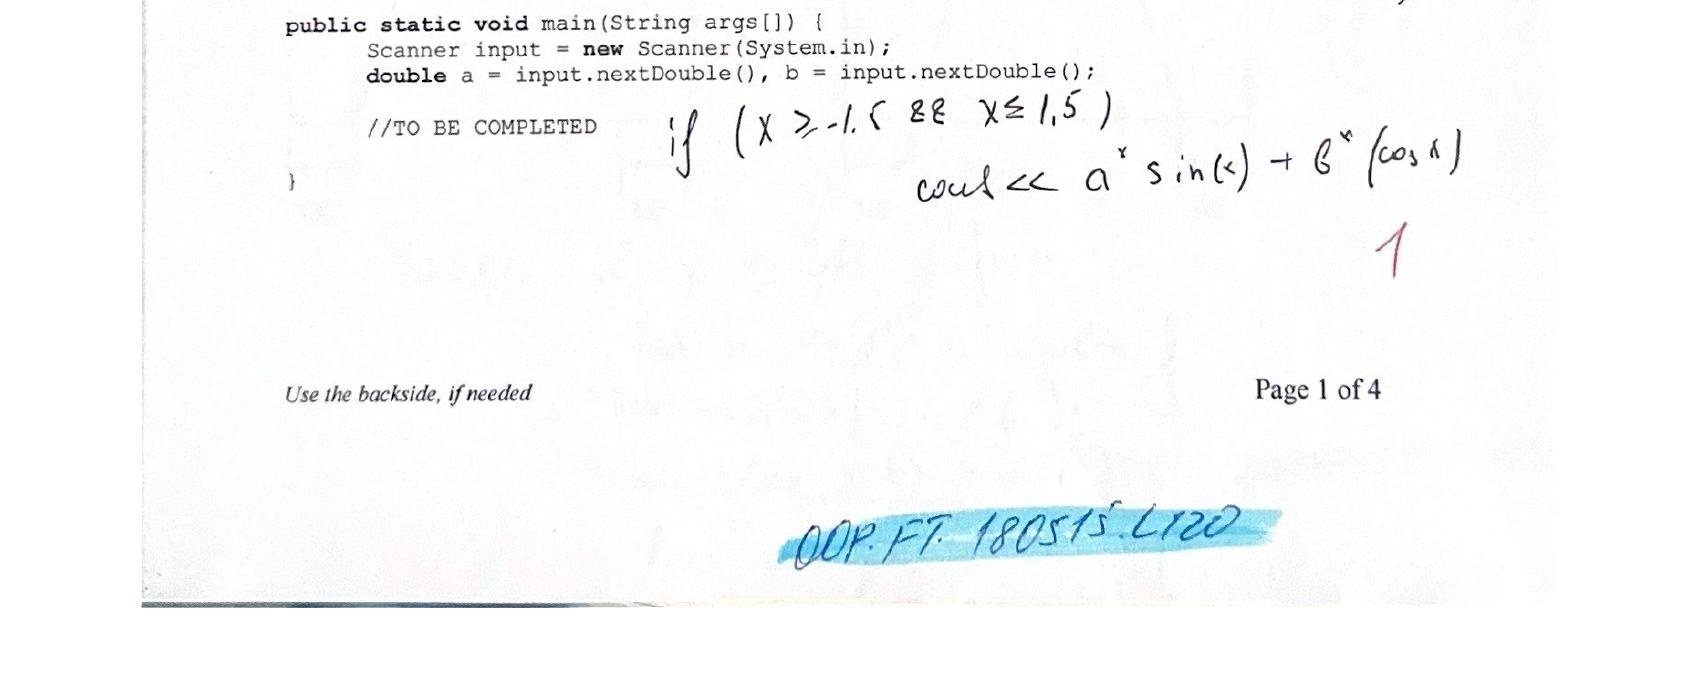 public static void main(String args[]) {
Scanner input = new Scanner(System.in);
double a = input.nextDouble(), b = input.nextDouble();
//TO BE COMPLETED
if (x ≥ -1.5 && x ≤ 1,5)
cout << a * sin(x) + b * (cos x)
}
1
Use the backside, if needed
Page 1 of 4
OOP.FT. 180515.L120